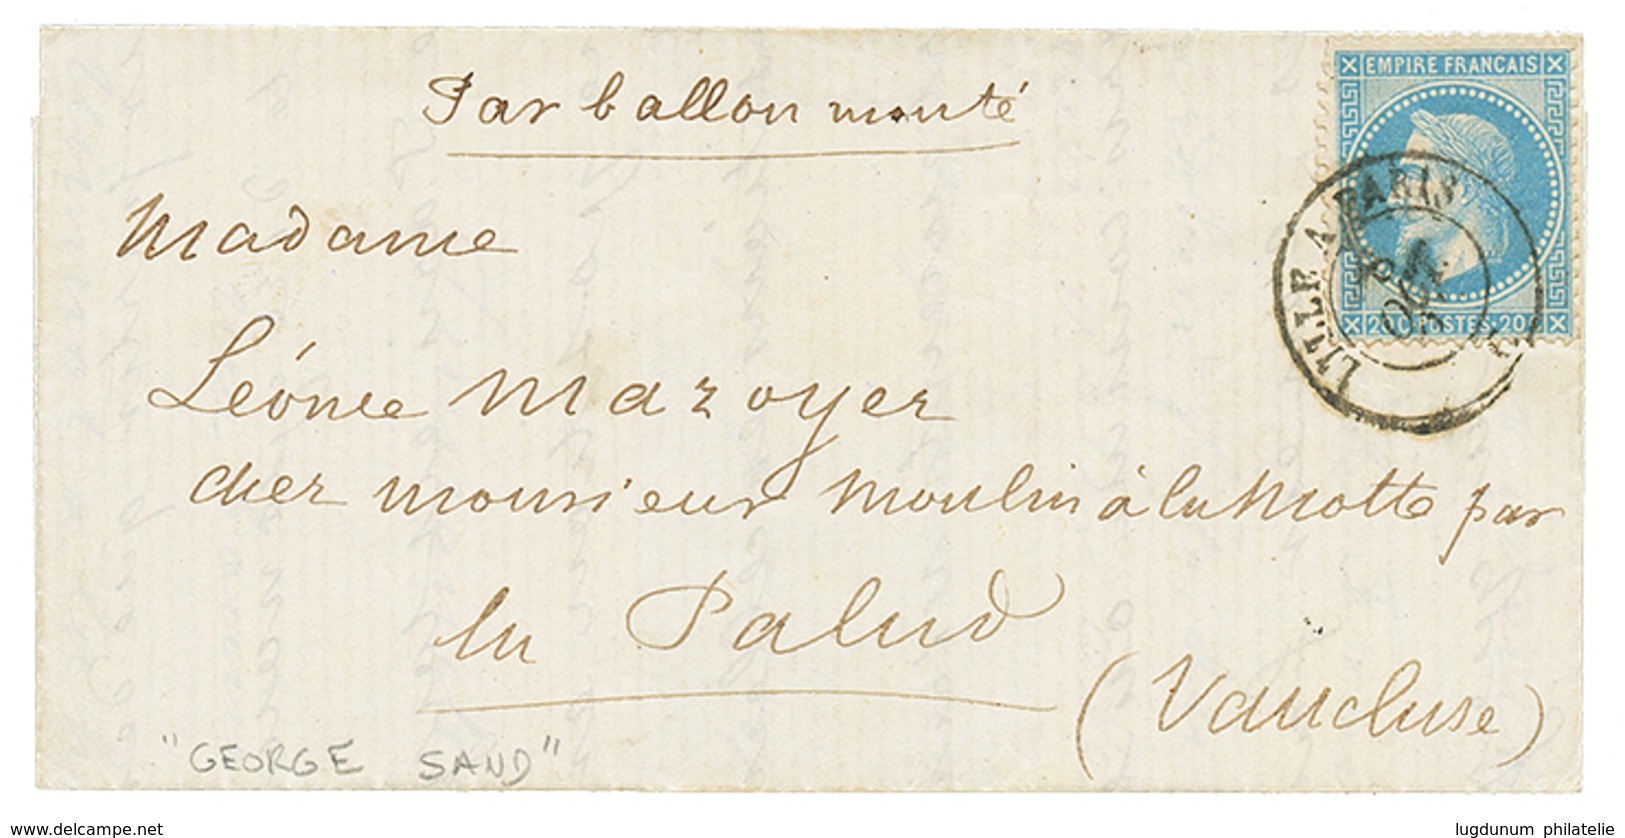 Par ballon monté
EMPIRE FRANCAIS
LILLE A PARIS
OCT
20 C POSTES. 20
Madame
Léonce Mazoyer
chez monsieur Moulin à la Motte par
la Palud
(Vaucluse)
"GEORGE SAND"
www.delcampe.net
lugdunum philatelie